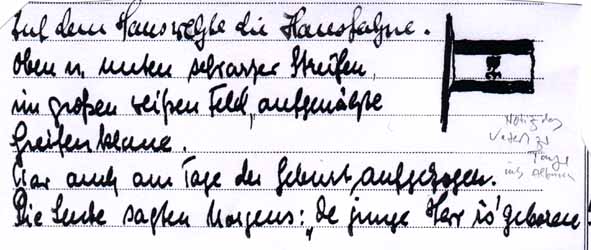 Auf dem Haus wehte die Hausfahne.
Oben u. unten schwarzer Streifen,
im großen weißen Feld, aufgenähte
Greifenklaue.
War auch am Tage der Geburt, aufgezogen.
Die Leute sagten Morgens: „De junge Herr is' geboren
Notiz des
Vaters zu
Tonys